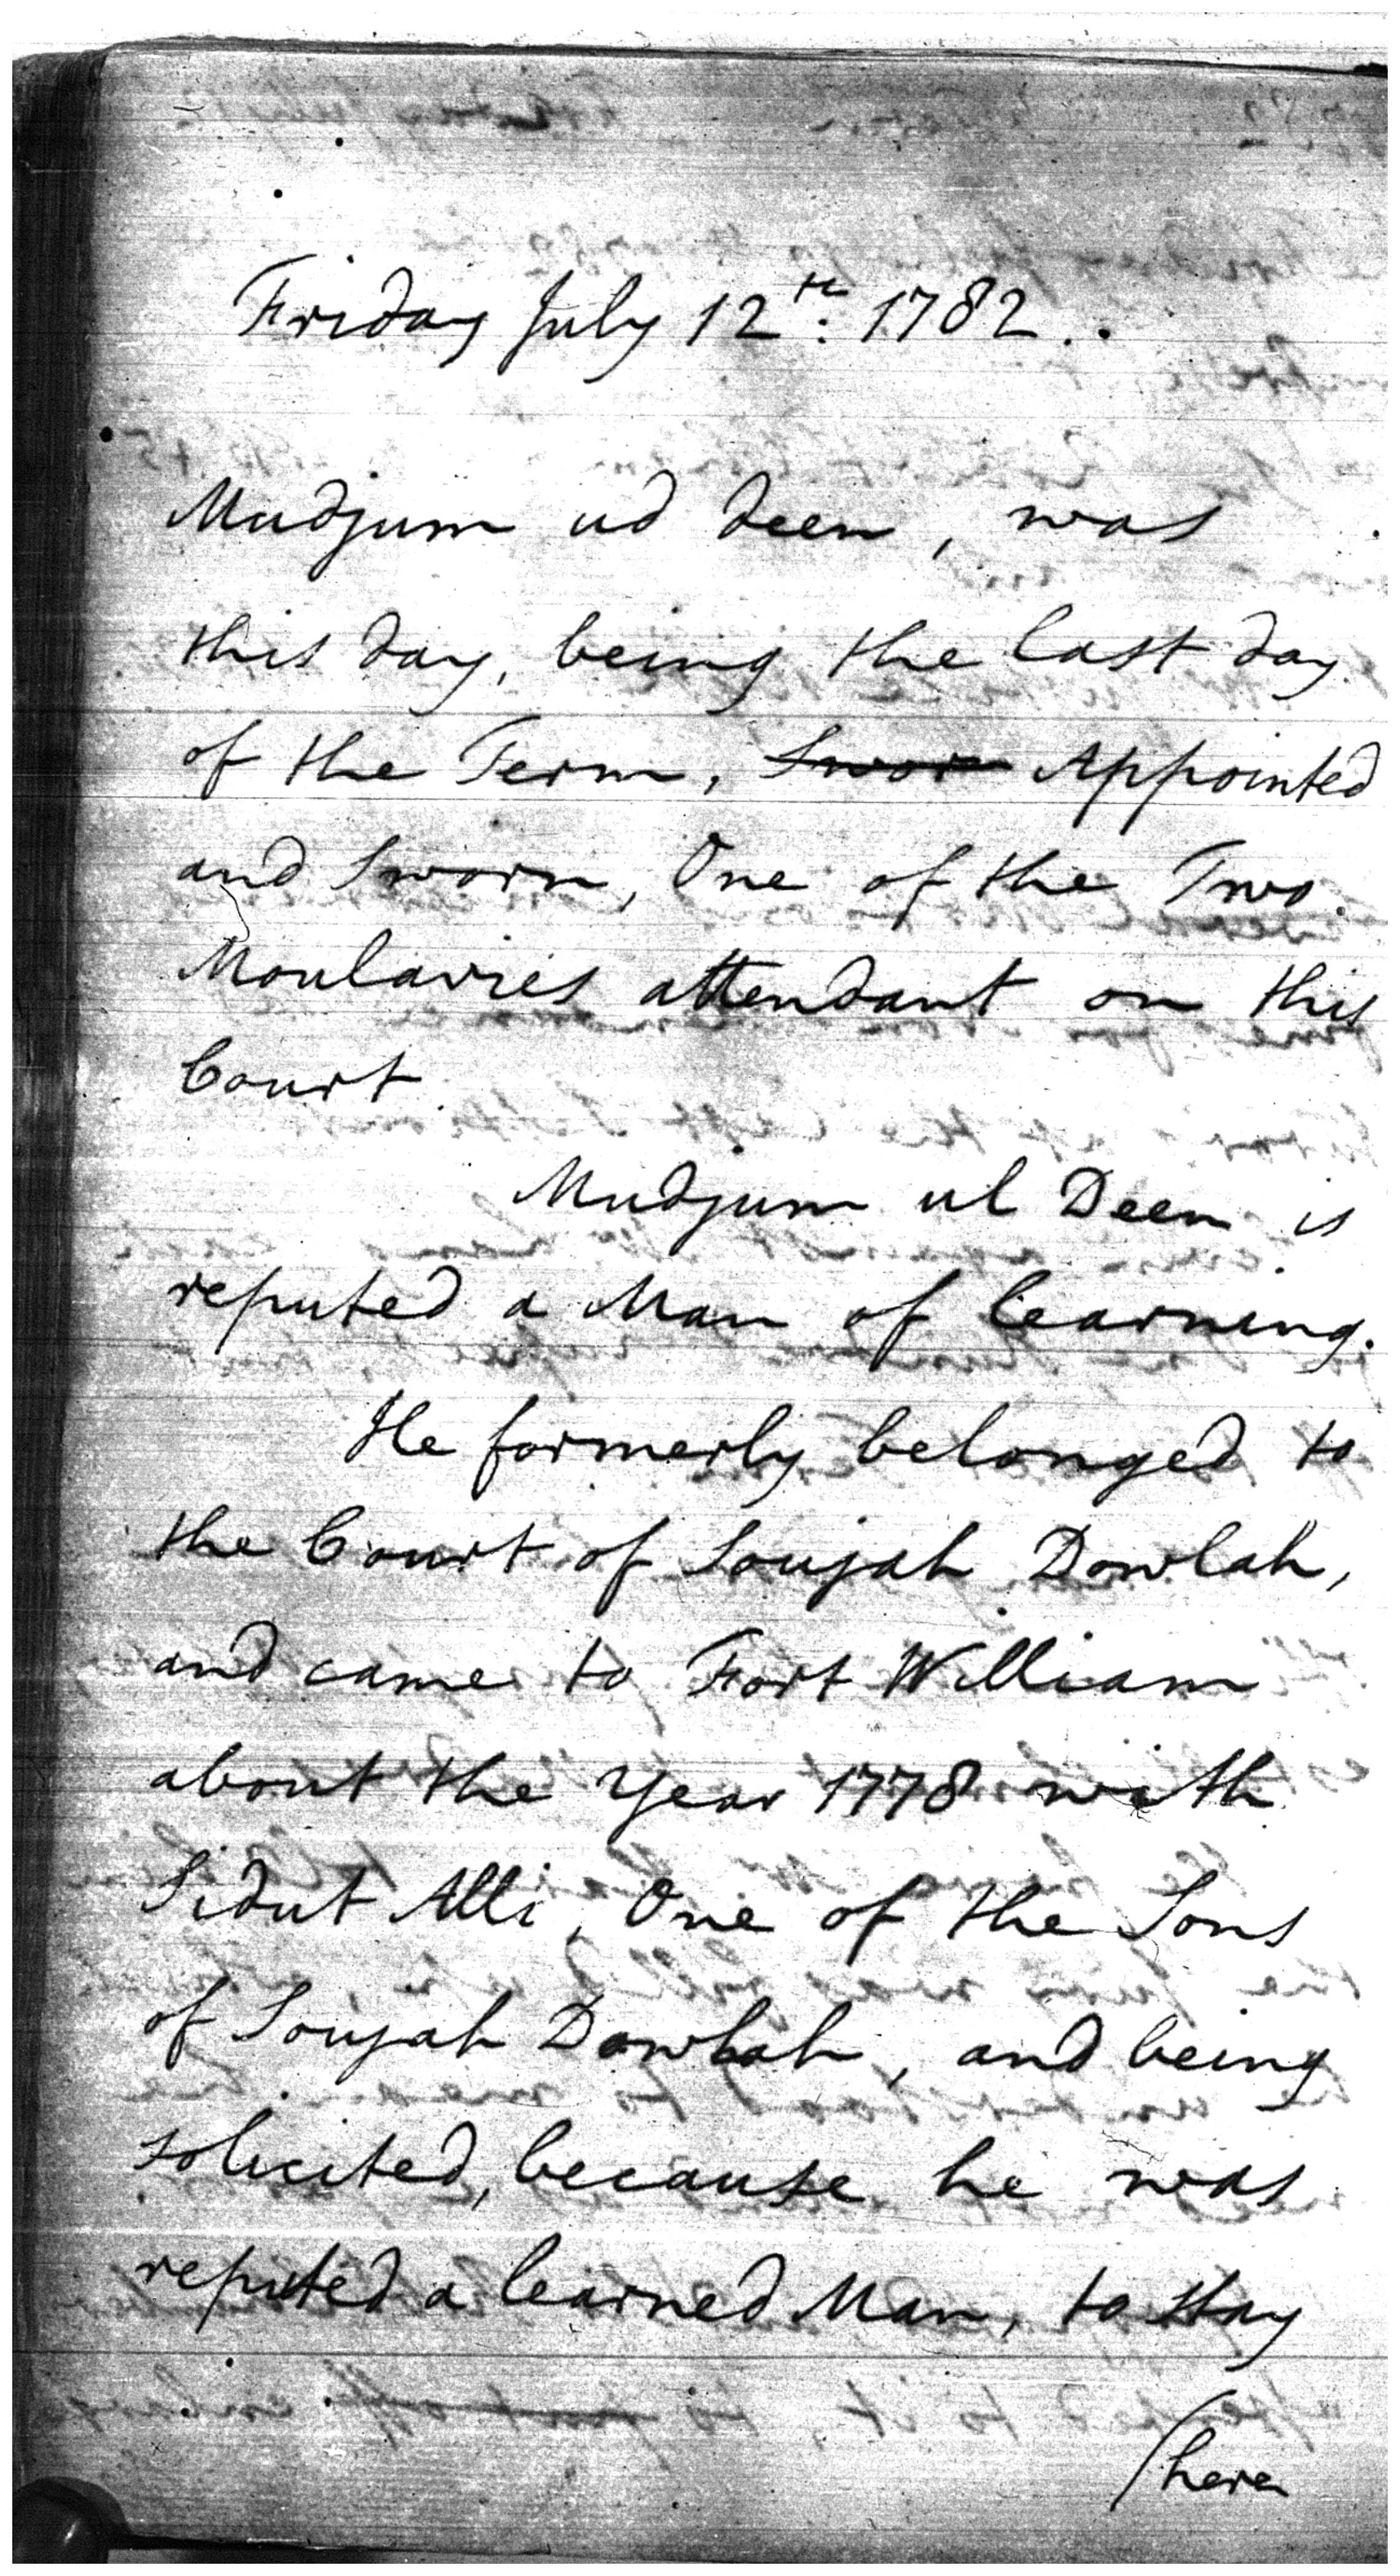 Friday July 12th: 1782..
Mudjum ud deen, was
this day, being the last day
of the Term, Swor Appointed
and Sworn, One of the Two
Moulavies attendant on this
Court.
Mudjum ul Deen is
reputed a Man of learning.
He formerly belonged to
the Court of Soujah Dowlah,
and came to Fort William
about the Year 1778 with
Sidut Alli, One of the Sons
of Soujah Dowlah, and being
solicited, because he was
reputed a learned Man, to stay
/here